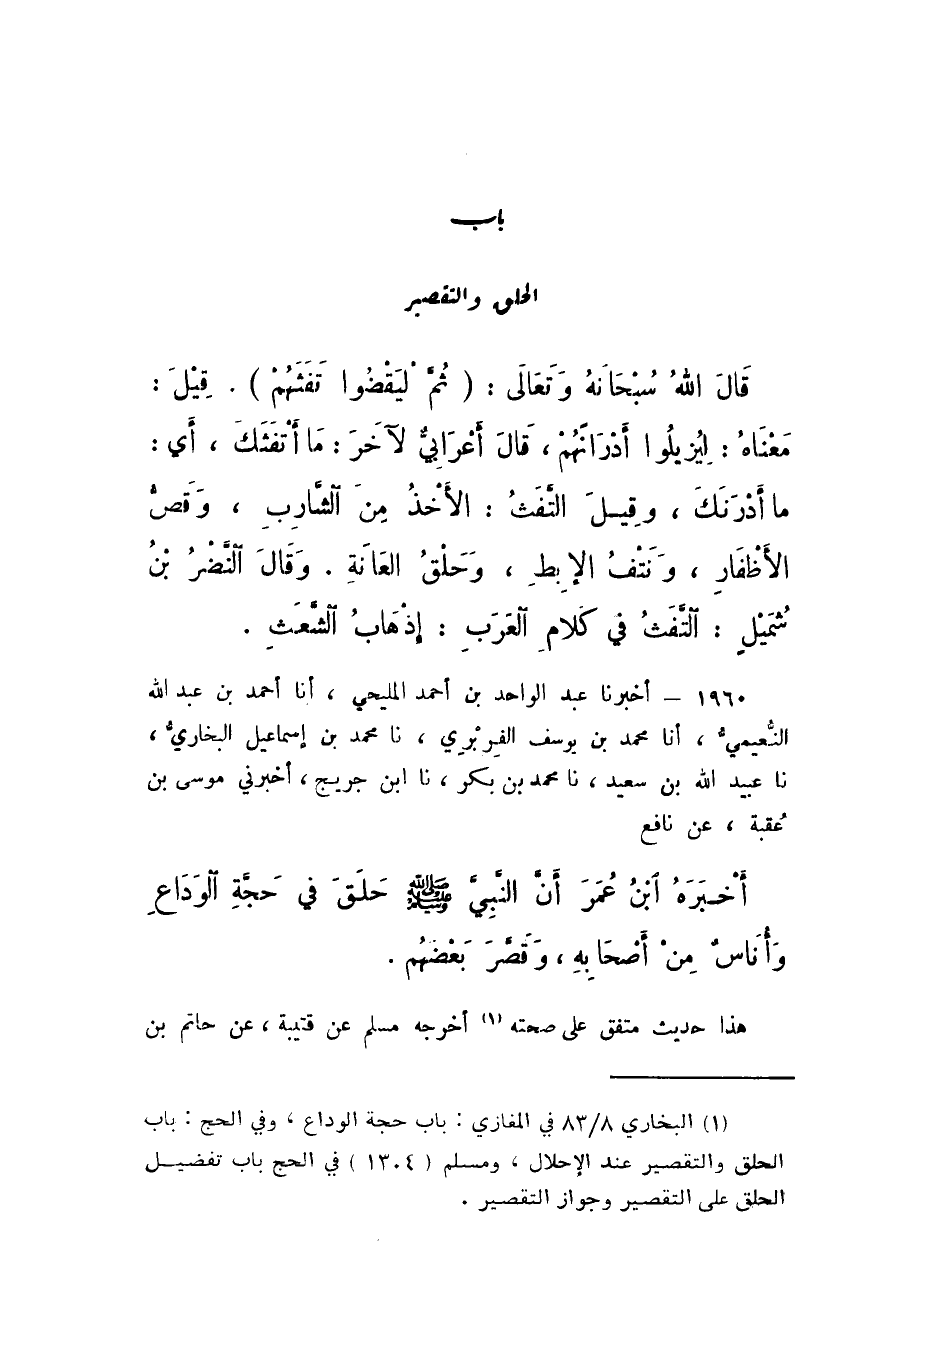 باب
الحلق والتقصير
قَالَ اللهُ سُبْحَانَهُ وَتَعَالَى : ( ثُمَّ لْيَقْضُوا تَفَثَهُمْ ) . قِيْلَ :
مَعْنَاهُ : لِيُزِيلُوا أَدْرَانَهُمْ ، قَالَ أَعْرَابِيٌّ لآخَرَ : مَا أَتْفَثَكَ ، أَي :
ما أَدْرَنَكَ ، وقِيـلَ التَّفَثُ : الأَخْذُ مِنَ الشَّارِبِ ، وَقَصُّ
الأَظْفَارِ ، وَنَتْفُ الإِبطِ ، وَحَلْقُ العَانَةِ . وَقَالَ النَّضْرُ بْنُ
شُمَيْلٍ : التَّفَثُ في كَلامِ العَرَبِ : إِذْهَابُ الشَّعَثِ .
١٩٦٠ – أخبرنا عبد الواحد بن أحمد المليحي ، أنا أحمد بن عبد الله
النُّعيميُّ ، أنا محمد بن يوسف الفِرَبْرِي ، نا محمد بن إسماعيل البخاريُّ ،
نا عبيد الله بن سعيد ، نا محمد بن بكر ، نا ابن جريج ، أخبرني موسى بن
عُقبة ، عن نافع
أَخْـبَرَهُ ابْنُ عُمَرَ أَنَّ النَّبِيَّ ﷺ حَلَقَ في حَجَّةِ الوَدَاعِ
وَأُنَاسٌ مِنْ أَصْحَابِهِ ، وَقَصَّرَ بَعْضُهُم .
هذا حديث متفق على صحته (١) أخرجه مسلم عن قتيبة ، عن حاتم بن
(١) البخاري ٨٣/٨ في المغازي : باب حجة الوداع ، وفي الحج : باب
الحلق والتقصير عند الإحلال ، ومسلم ( ١٣٠٤ ) في الحج باب تفضيـل
الحلق على التقصير وجواز التقصير .